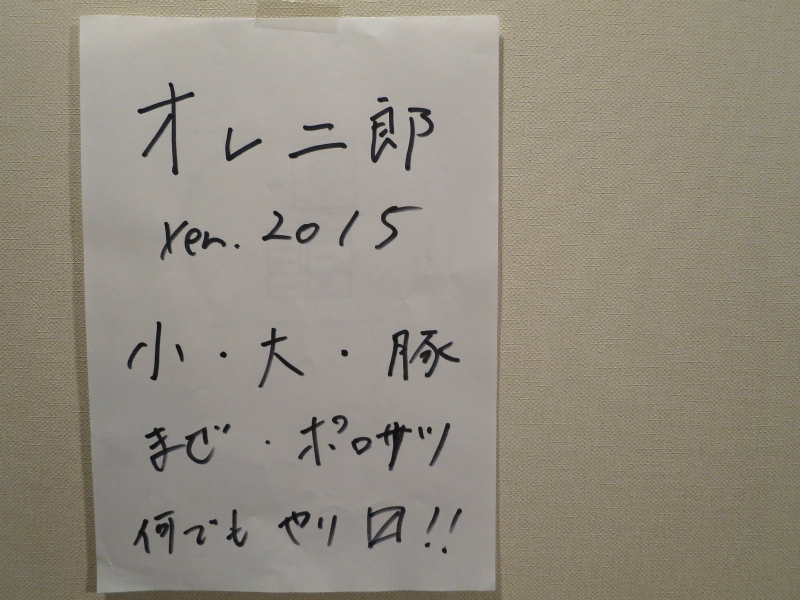 オレ二郎
ver.2015
小・大・豚
まぜ・ポロサツ
何でもやり〼!!